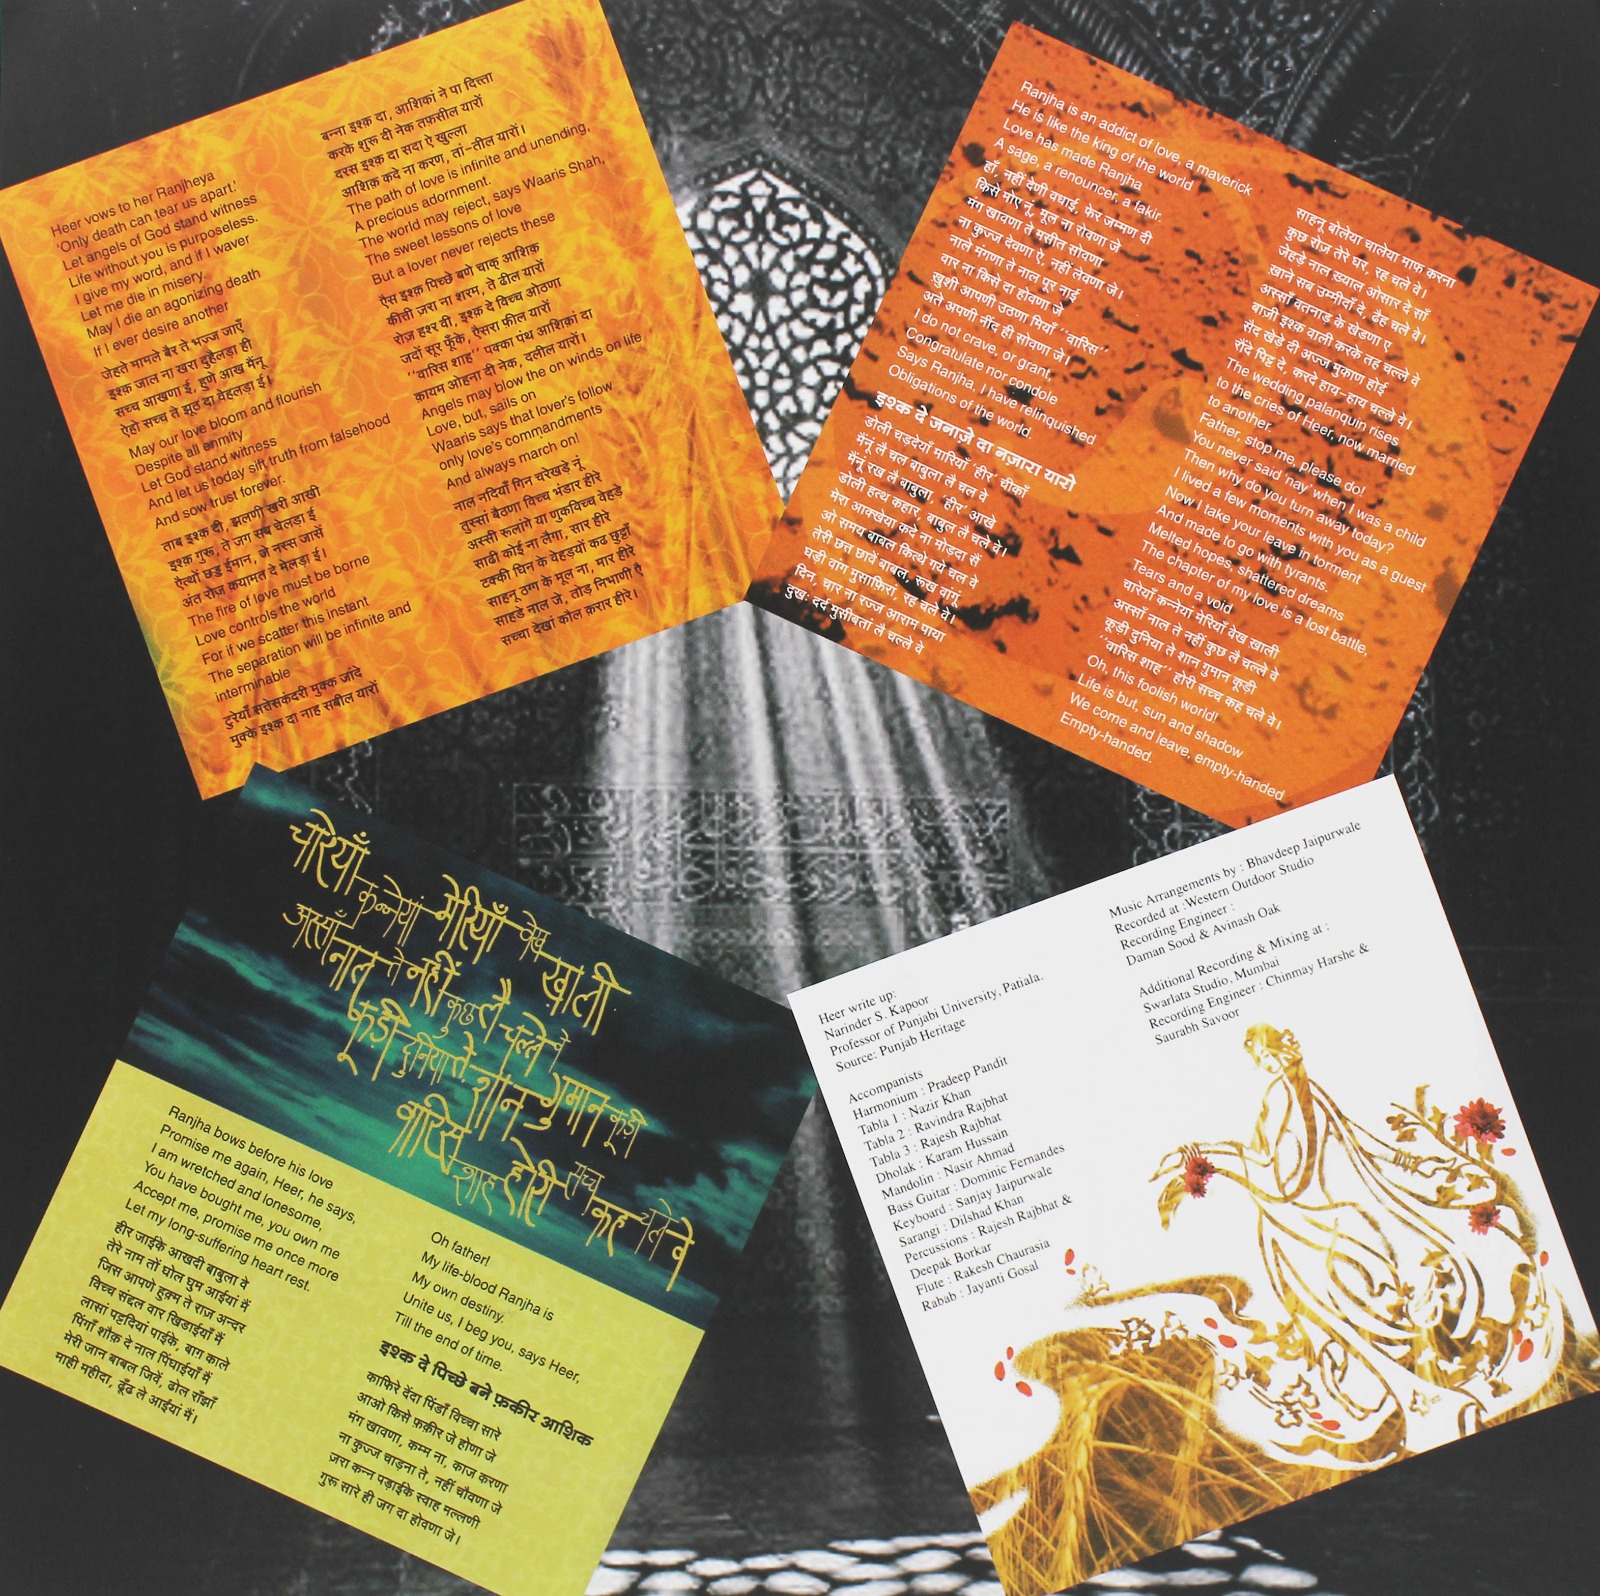 Heer vows to her Ranjheya
'Only death can tear us apart.'
Let angels of God stand witness
Life without you is purposeless.
I give my word, and if I waver
Let me die in misery.
May I die an agonizing death
If I ever desire another
जेहते मामले बैर ते भज्ज जाएँ
इश्क़ जाल ना खरा दुहेलड़ा ही
सच्च आखणा ई, हुणे आख मैंनू
ऐहो सच्च ते झूठ दा वेहलड़ा ई।
May our love bloom and flourish
Despite all enmity
Let God stand witness
And let us today sift truth from falsehood
And sow trust forever.
ताब इश्क़ दी, झलणी खरी आखी
इश्क़ गुरू, ते जग सब चेलड़ा ई
ऐत्थों छड्ड ईमान, जे नस्स जासें
अंत रोज़ क़यामत दे मेलड़ा ई।
The fire of love must be borne
Love controls the world
For if we scatter this instant
The separation will be infinite and
interminable
टुरेयाँ सतेसकंदरी मुक्क जांदे
मुक्के इश्क़ दा नाह सबील यारों
बन्ना इश्क़ दा, आशिकां ने पा दित्ता
करके शुरू दी नेक तफ़सील यारों
दरस इश्क़ दा सदा ऐ खुल्ला
आशिक़ कदे ना करण, तां-तील यारों।
The path of love is infinite and unending,
A precious adornment.
The world may reject, says Waaris Shah,
The sweet lessons of love
But a lover never rejects these
ऐस इश्क़ पिच्छे बणे चाक़ आशिक़
कीती ज़रा ना शरम, ते ढील यारों
रोज़ हश्र दी, इश्क़ दे विच्च ओठणा
जदों सूर फूँके, ऐसरा फील यारों
"वारिस शाह" पक्का पंथ आशिकां दा
कायम ओहना दी नेक, दलील यारों।
Angels may blow the on winds on life
Love, but, sails on
Waaris says that lover's follow
only love's commandments
And always march on!
नाल नदियाँ गिन चरेखड़े नूं
तुस्सां बैठणा विच्च भंडार हीरे
अस्सी रूलांगे या णुकविच्च वेहड़े
साढी कोई ना लैगा, सार हीरे
टक्की घिन के वेहडयों कढ छुट्टाँ
साहनू ठग के मूल ना, मार हीरे
साहडे नाल जे, तोड़ निभाणी ऐ
सच्चा देखां कोल करार हीरे।
Ranjha is an addict of love, a maverick
He is like the king of the world
Love has made Ranjha
A sage, a renouncer, a fakir.
हाँ, नहीं देणी वधाई, फेर जम्मण दी
किसे मोए नूं, मूल ना रोवणा जे
मंग खावणा ते मसीत सोवणा
ना कुज्ज देवणा ऐ, नहीं लेवणा जे।
नाले मंगणा ते नाल पूर नाई
वार ना किसे दा होवणा जे
खुशी आपणी उठणा मियाँ "वारिस"
अते अपणी नींद ही सोंवणा जे।
I do not crave, or grant,
Congratulate nor condole
Says Ranjha, I have relinquished
Obligations of the world.
इश्क दे जनाज़े दा नज़ारा यारो
डोली चड़देयाँ मारियाँ 'हीर' चीकाँ
मैंनूं लै चल बाबुला लै चल वे
मैंनूं रख लै बाबुला, 'हीर' आखे
डोली हत्थ कहार, बाबुल लै चले वे।
मेरा आक्खेया कदे ना मोड़दा सैं
ओ समय बाबल कित्थे गये चल वे
तेरी छत्त छावें बाबल, रूख वांगूं
घड़ी वांग मुसाफिरां, रह चले वे।
दिन, चार ना रज्ज आराम पाया
दुख: दर्द मुसीबतां लै चल्ले वे
साहनू बोलेया चालेया माफ करना
कुछ रोज़ तेरे घर, रह चले वे।
जेहड़े नाल ख़्याल ओसार दे साँ
खाने सब उम्मीदाँ दे, ढैह चले वे।
अस्सां बतनाड़ के खेडणा ऐ
बाज़ी इश्क वाली करके तह चल्ले वे
सैद खेड़े दी अज्ज मुकाण होई
राँदे पिट्ट दे, करदे हाय-हाय चल्ले वे।
The wedding palanquin rises
to the cries of Heer, now married
to another.
Father, stop me, please do!
You never said 'nay' when I was a child
Then why do you turn away today?
I lived a few moments with you as a guest
Now I take your leave in torment
And made to go with tyrants.
Melted hopes, shattered dreams
The chapter of my love is a lost battle,
Tears and a void
चारेयाँ कन्नेयां मेरियाँ वेख ख़ाली
अस्साँ नाल ते नहीं कुछ लै चल्ले वे
कूड़ी दुनिया ते शान गुमान कूड़ी
"वारिस शाह" होरी सच्च कह चले वे।
Oh, this foolish world!
Life is but, sun and shadow
We come and leave, empty-handed
Empty-handed.
चारेयाँ कन्नेयां मेरियाँ वेख ख़ाली
अस्साँ नाल ते नहीं कुछ लै चल्ले वे
कूड़ी दुनिया ते शान गुमान कूड़ी
वारिस शाह होरी सच्च कह चले वे
Ranjha bows before his love
Promise me again, Heer, he says,
I am wretched and lonesome,
You have bought me, you own me
Accept me, promise me once more
Let my long-suffering heart rest.
हीर जाईके आखदी बाबुला वे
तेरे नाम तों घोल घुम आईयां मैं
जिस आपणे हुक्म ते राज़ अन्दर
विच्च संद्दल वार खिडाईयाँ मैं
लासां पट्टदियां पाईके, बाग़ काले
पिंगाँ शौक़ दे नाल पिंघाईयाँ मैं
मेरी जान बाबल जिवें, ढोल राँझाँ
माही महीदा, ढूँढ ले आईयां मैं।
Oh father!
My life-blood Ranjha is
My own destiny.
Unite us, I beg you, says Heer,
Till the end of time.
इश्क दे पिच्छे बने फ़कीर आशिक
काफिरे देंदा पिंडाँ विच्चा सारे
आओ किसे फ़क़ीर जे होणा जे
मंग खावणा, कम्म ना, काज करणा
ना कुज्ज चाड़ना ते, नहीं चौवणा जे
ज़रा कन्न पड़ाईके स्वाह मल्लणी
गुरू सारे ही जग दा होवणा जे।
Heer write up:
Narinder S. Kapoor
Professor of Punjabi University, Patiala.
Source: Punjab Heritage
Accompanists
Harmonium : Pradeep Pandit
Tabla 1 : Nazir Khan
Tabla 2 : Ravindra Rajbhat
Tabla 3 : Rajesh Rajbhat
Dholak : Karam Hussain
Mandolin : Nasir Ahmad
Bass Guitar : Dominic Fernandes
Keyboard : Sanjay Jaipurwale
Sarangi : Dilshad Khan
Percussions : Rajesh Rajbhat &
Deepak Borkar
Flute : Rakesh Chaurasia
Rabab : Jayanti Gosal
Music Arrangements by : Bhavdeep Jaipurwale
Recorded at :Western Outdoor Studio
Recording Engineer :
Daman Sood & Avinash Oak
Additional Recording & Mixing at :
Swarlata Studio, Mumbai
Recording Engineer : Chinmay Harshe &
Saurabh Savoor